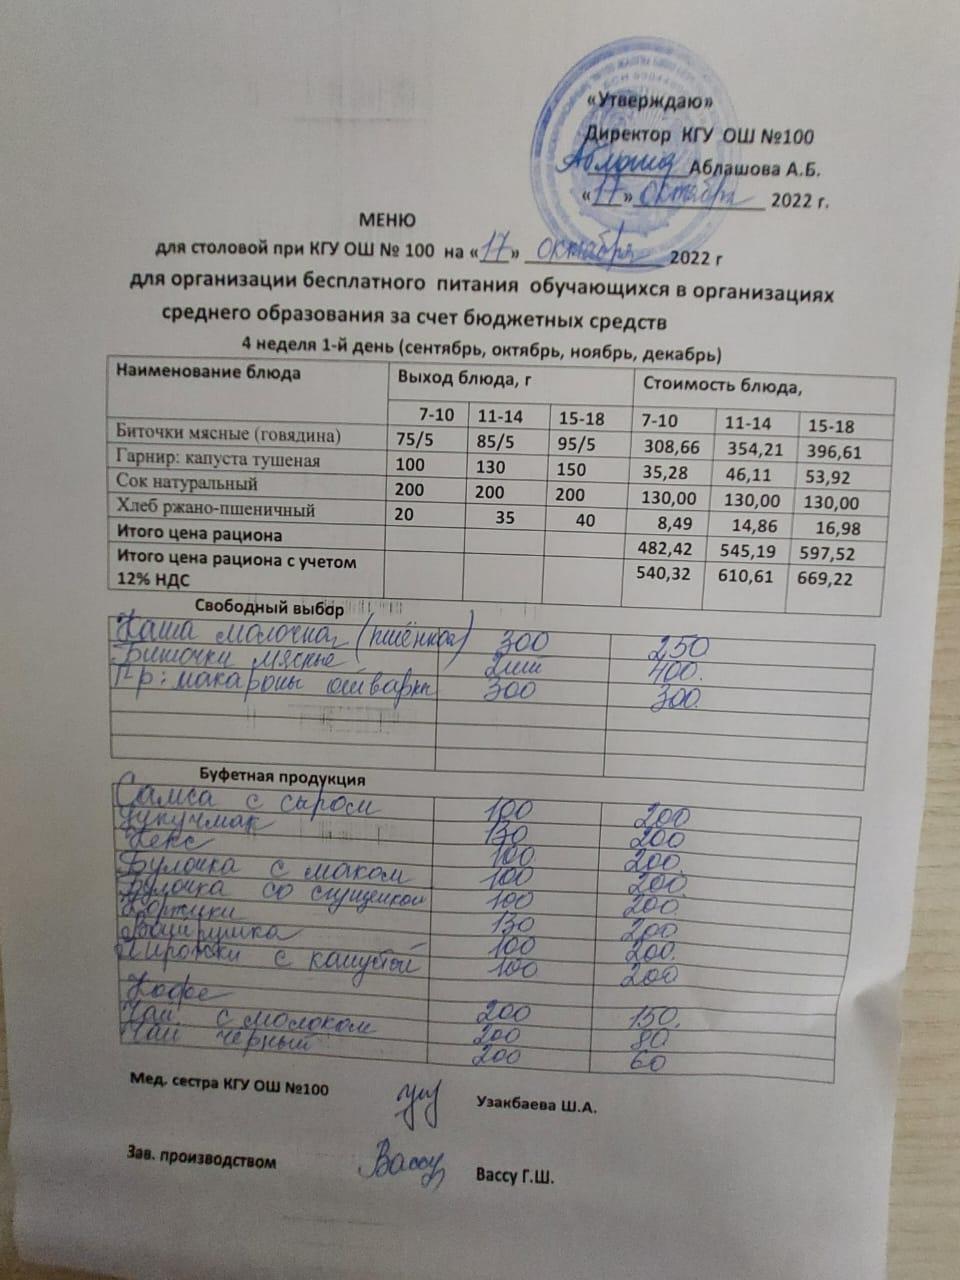 «Утверждаю»
Директор КГУ ОШ №100
Аблашова А.Б.
«17» октября 2022 г.
МЕНЮ
для столовой при КГУ ОШ № 100 на «17» октября 2022 г
для организации бесплатного питания обучающихся в организациях
среднего образования за счет бюджетных средств
4 неделя 1-й день (сентябрь, октябрь, ноябрь, декабрь)
Наименование блюда Выход блюда, г Стоимость блюда,
7-10 11-14 15-18 7-10 11-14 15-18
Биточки мясные (говядина) 75/5 85/5 95/5 308,66 354,21 396,61
Гарнир: капуста тушеная 100 130 150 35,28 46,11 53,92
Сок натуральный 200 200 200 130,00 130,00 130,00
Хлеб ржано-пшеничный 20 35 40 8,49 14,86 16,98
Итого цена рациона 482,42 545,19 597,52
Итого цена рациона с учетом
12% НДС 540,32 610,61 669,22
Свободный выбор
Каша молочная (пшённая) 300 250
Биточки мясные 2шт 400.
Гр: макароны отварн 300 300.
Буфетная продукция
Самса с сыром 100 200
Учпучмак 130 200
Кекс 100 200
Булочка с маком 100 200
Булочка со сгущенкой 100 200
Коржики 130 200
Ватрушка 100 200.
Пирожки с капустой 100 200
Кофе 200 150.
Чай с молоком 200 80
Чай черный 200 60
Мед. сестра КГУ ОШ №100 Узакбаева Ш.А.
Зав. производством Вассу Вассу Г.Ш.